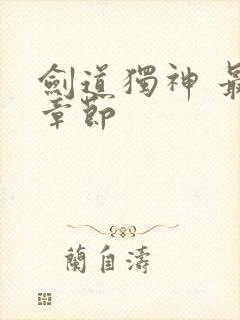 劍道獨神 最
章節
蘭自濤